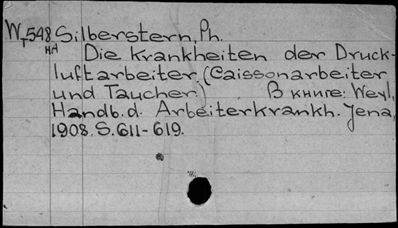 W₁548 Silberstern, Ph.
НА Die Krankheiten der Druck-
luftarbeiter (Caissonarbeiter
und Taucher.) В книге: Weyl,
Handb. d. Arbeiterkrankh. Jena,
1908. S. 611-619.